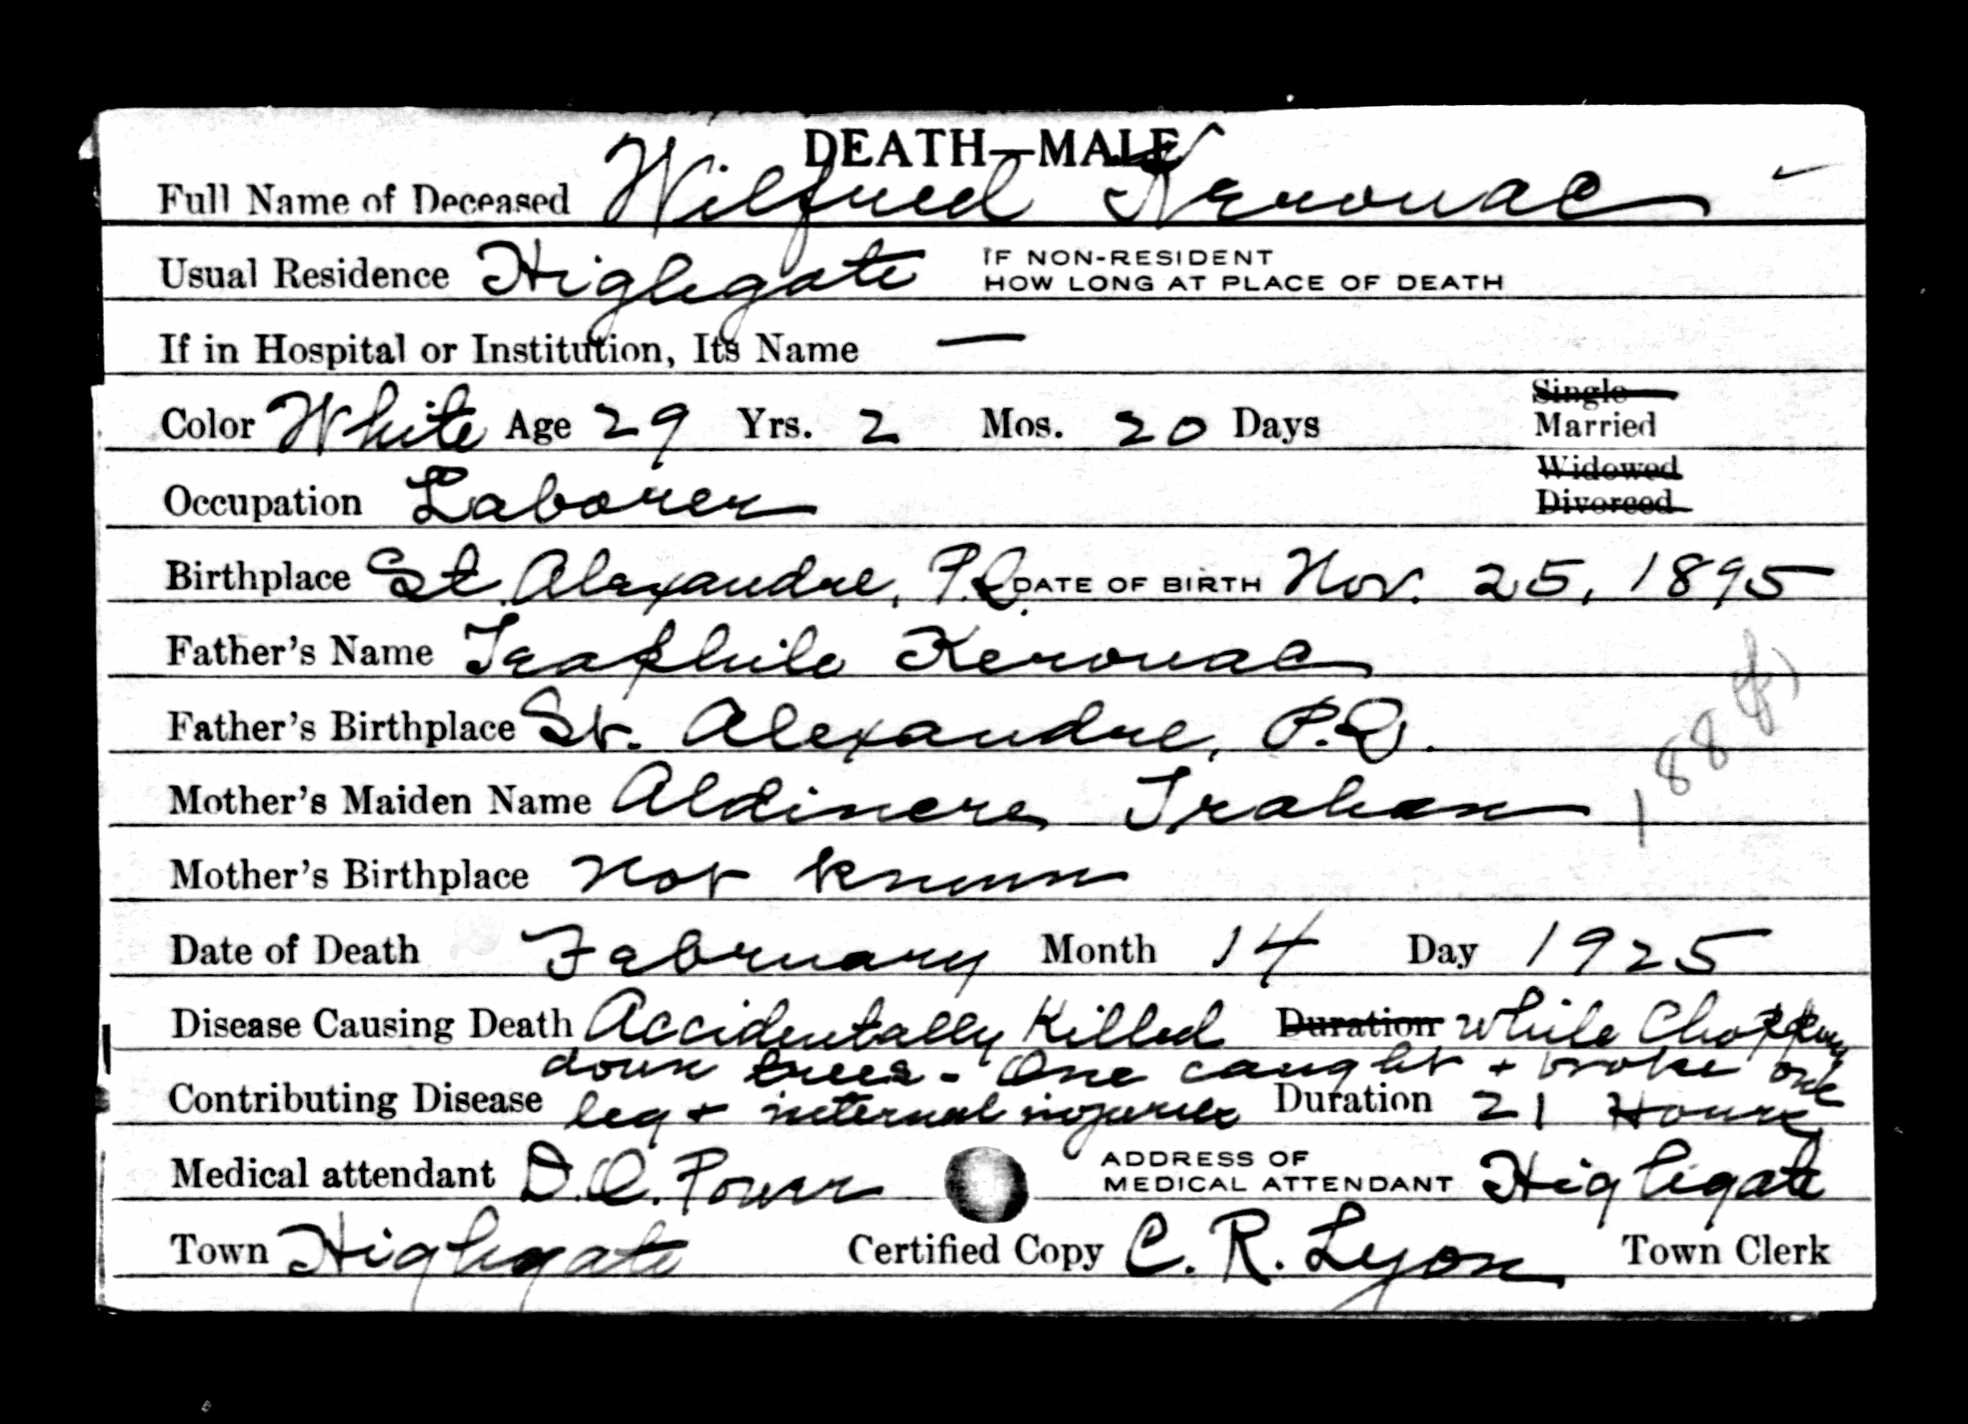 DEATH—MALE
Full Name of Deceased Wilfred Kerouac
Usual Residence Highgate IF NON-RESIDENT
HOW LONG AT PLACE OF DEATH
If in Hospital or Institution, Its Name —
Color White Age 29 Yrs. 2 Mos. 20 Days Single
Married
Widowed
Occupation Laborer Divorced
Birthplace St. Alexandre, P.Q. DATE OF BIRTH Nov. 25, 1895
Father's Name Teaphile Kerouac
Father's Birthplace St. Alexandre, P.Q.
Mother's Maiden Name Trahan
188
Mother's Birthplace Not known
Date of Death February Month 14 Day 1925
Disease Causing Death Accidentally Killed Duration while Chopping
down trees - One caught + broke one
Contributing Disease leg + internal injuries Duration 21 Hours
Medical attendant Power ADDRESS OF
MEDICAL ATTENDANT Highgate
Town Highgate Certified Copy C. R. Lyon Town Clerk